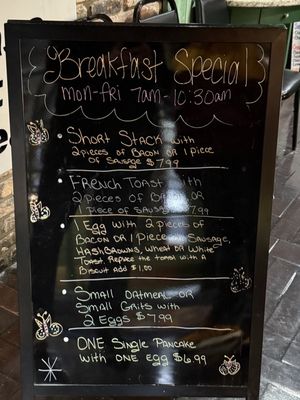 Breakfast Special
mon-fri 7am-10:30am
Short Stack with
2 pieces of Bacon or 1 piece
of Sausage $7.99
French Toast with
2 pieces of Bacon or
1 piece of Sausage $7.99
1 Egg with 2 pieces of
Bacon or 1 piece of Sausage,
Hashbrowns, Wheat or White
Toast Replace the toast with a
Biscuit add $1.00
Small Oatmeal or
Small Grits with
2 Eggs $7.99
One Single Pancake
with one egg $6.99